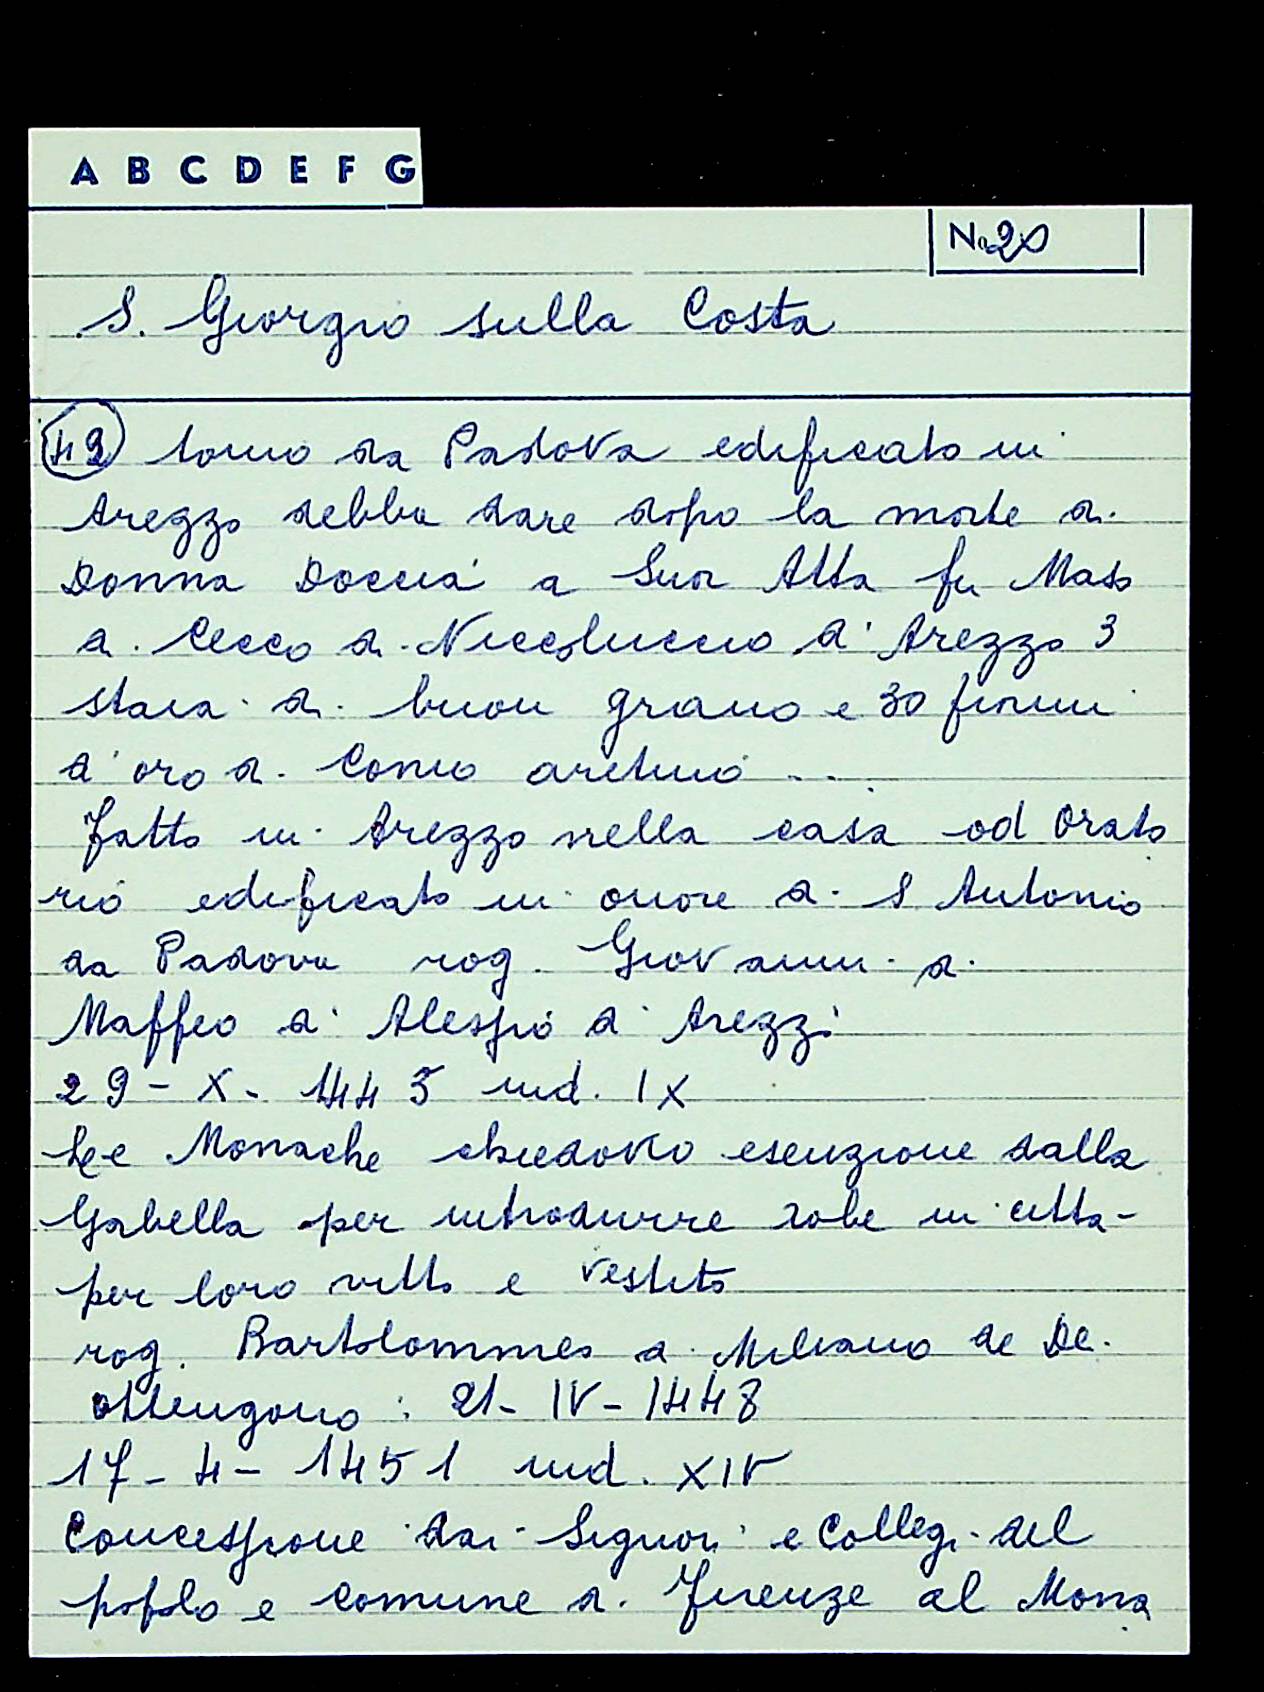 A B C D E F G
No 20
S. Giorgio sulla Costa
42 tonio da Padova edificato in
Arezzo debba dare dopo la morte di
Donna Doccia a Suor Atta fu Maso
di Cecco di Niccoluccio d'Arezzo 3
staia di buon grano e 30 fiorini
d'oro di Conio aretino ...
Fatto in Arezzo nella casa od Orato
rio edificato in onore di S Antonio
da Padova rog. Giovanni di
Maffeo d' Alesso d' Arezzi
29 - X - 1445 ind. IX
Le Monache chiedono esenzione dalla
Gabella per introdurre robe in citta
per loro vitto e vestito
rog. Bartolommeo di Miliano de De.
ottengono : 21 - IV - 1448
17 - 4 - 1451 ind. XIV
Concessione dai Signori e Collegi del
popolo e comune di Firenze al Mona